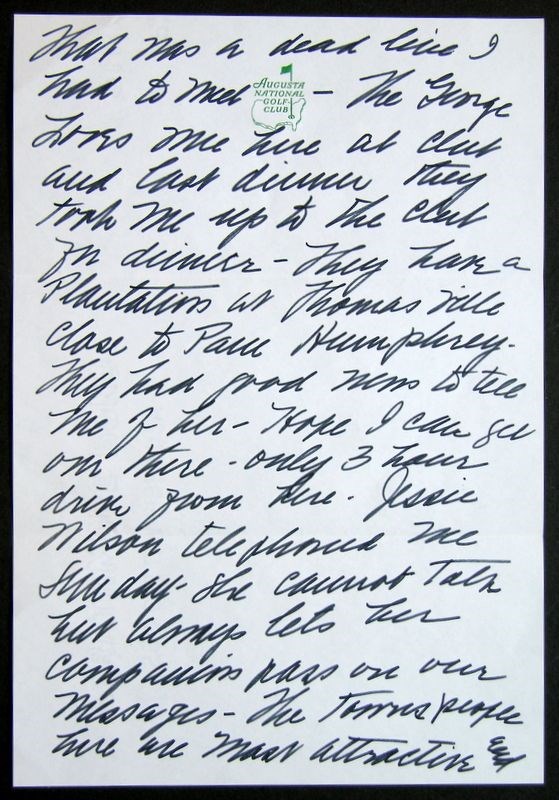 That was a dead line I
had to meet — The George
AUGUSTA
NATIONAL
GOLF
CLUB
Loves me here at club
and last dinner they
took me up to the club
for dinner - They have a
Plantation at Thomasville
close to Pam Humphrey.
They had good news to tell
me of her - Hope I can get
over there - only 3 hour
drive from here. Jessie
Wilson telephoned me
Sunday - she cannot Talk
but always lets her
companion pass on our
messages - The Townspeople
here are most attractive and